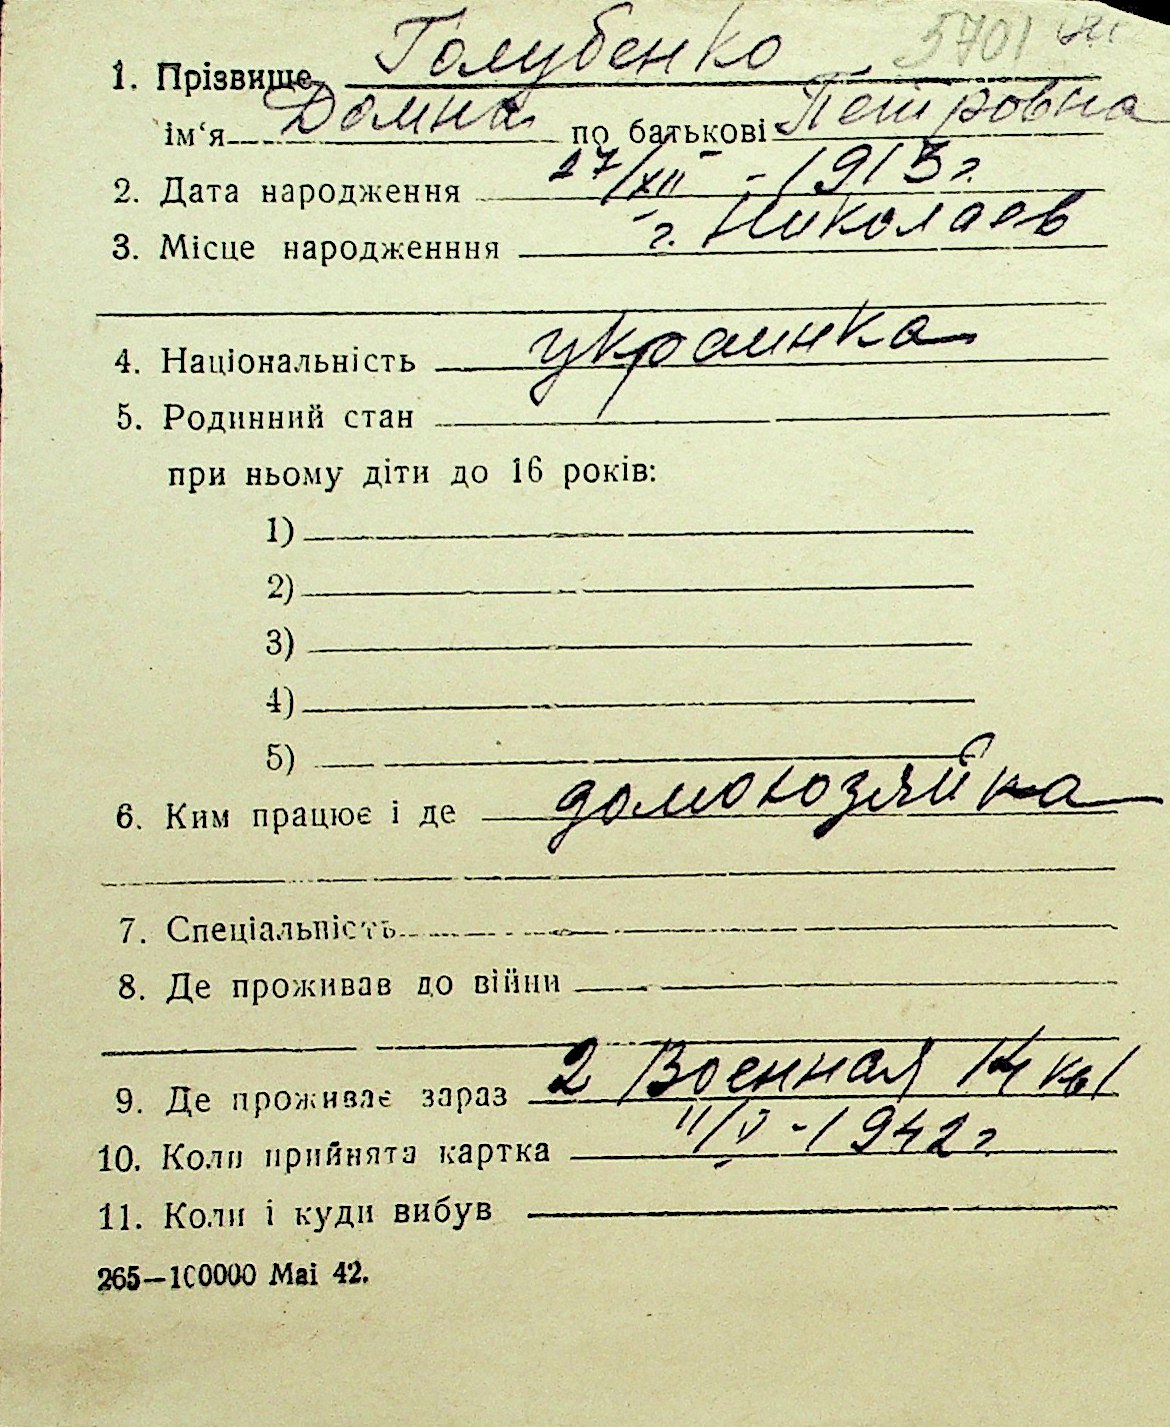 5701
1. Прізвище Голубенко
ім‘я Домна по батькові Петровна
2. Дата народження 27/XII - 1913г.
3. Місце народженння г. Николаев
4. Національність украинка
5. Родинний стан
при ньому діти до 16 років:
1)
2)
3)
4)
5)
6. Ким працює і де домохозяйка
7. Спеціальність
8. Де проживав до війни
9. Де проживає зараз 2 Военная 14 кв 1
10. Коли прийнята картка 11/V - 1942г
11. Коли і куди вибув
265—100000 Mai 42.